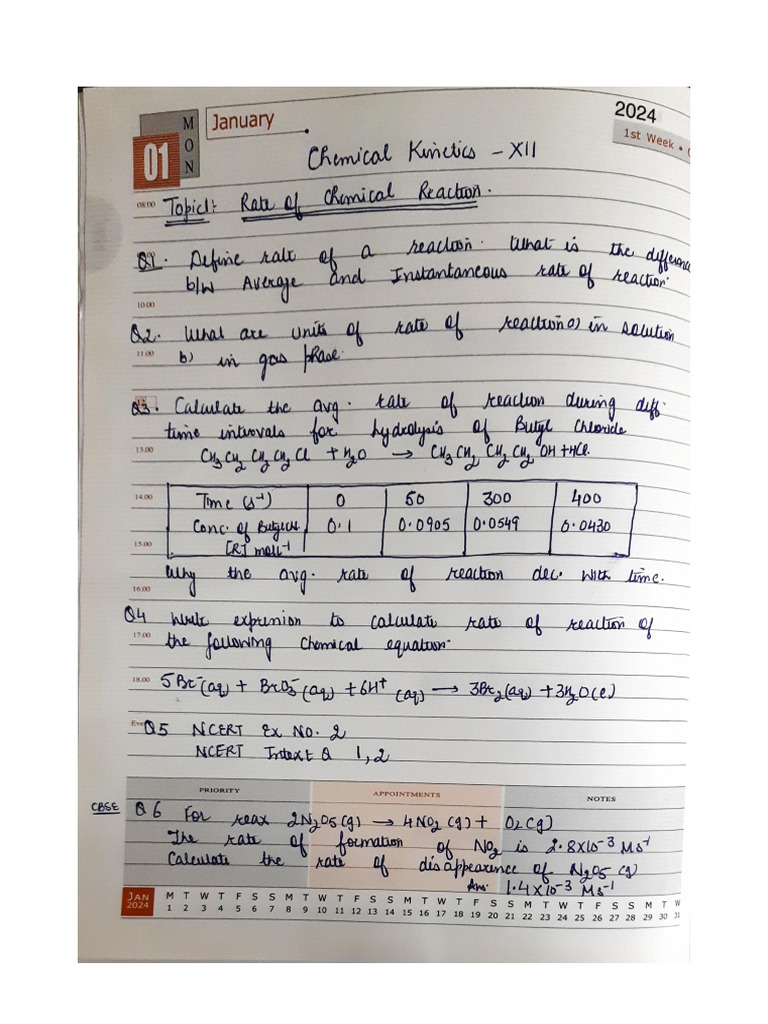 MON
January
2024
01
1st Week •
Chemical Kinetics - XII
08.00
Topic1: Rate of Chemical Reaction.
Q1. Define rate of a reaction. What is the difference
b/w Average and Instantaneous rate of reaction.
10.00
Q2. What are units of rate of reaction a) in solution
11.00
b) in gas phase.
Q3. Calculate the avg. rate of reaction during diff.
time intervals for hydrolysis of Butyl Chloride
13.00
CH3CH2CH2CH2Cl + H2O → CH3CH2CH2CH2OH + HCl.
14.00
Time (s⁻¹) 0 50 300 400
Conc. of 0.1 0.0905 0.0549 0.0430
15.00
[R] moll⁻¹
Why the avg. rate of reaction dec. with time.
16.00
Q4 Write expression to calculate rate of reaction of
17.00
the following Chemical equation.
18.00
5Br⁻(aq) + BrO3⁻(aq) + 6H⁺(aq) → 3Br2(aq) + 3H2O(l)
Q5 NCERT Ex No. 2
NCERT Intext Q 1,2
PRIORITY APPOINTMENTS NOTES
CBSE Q6 For reax 2N2O5(g) → 4NO2(g) + O2(g)
The rate of formation of NO2 is 2.8x10⁻³ Ms⁻¹
Calculate the rate of disappearence of N2O5(g)
Ans. 1.4x10⁻³ Ms⁻¹
JAN
2024
M T W T F S S M T W T F S S M T W T F S S M T W T F S S M T W
1 2 3 4 5 6 7 8 9 10 11 12 13 14 15 16 17 18 19 20 21 22 23 24 25 26 27 28 29 30 31